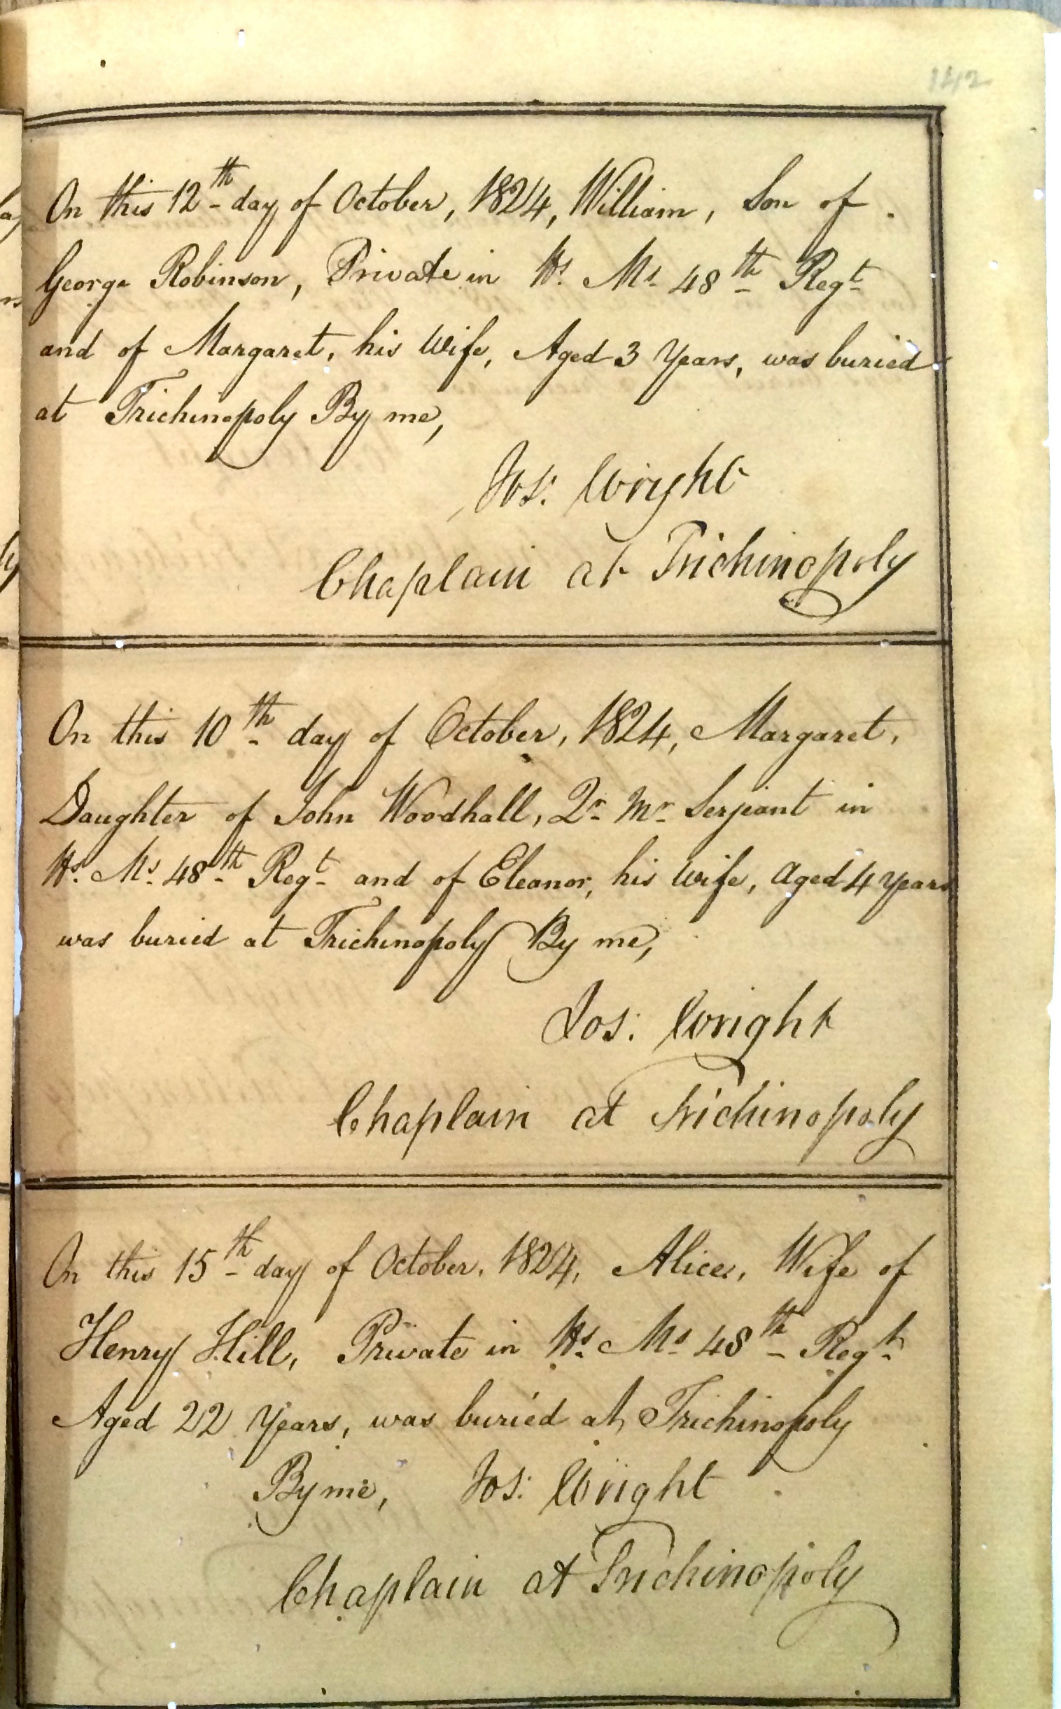 142
On this 12th day of October, 1824, William, Son of
George Robinson, Private in Hs. Ms. 48th Regt.
and of Margaret, his Wife, Aged 3 Years, was buried
at Trichinopoly By me,
Jos: Wright
Chaplain at Trichinopoly
On this 10th day of October, 1824, Margaret,
Daughter of John Woodhall, Qr. Mr. Serjeant in
Hs. Ms. 48th Regt. and of Eleanor, his Wife, Aged 4 years
was buried at Trichinopoly By me,
Jos: Wright
Chaplain at Trichinopoly
On this 15th day of October, 1824, Alice, Wife of
Henry Hill, Private in Hs. Ms. 48th Regt.
Aged 22 Years, was buried at Trichinopoly
By me, Jos: Wright
Chaplain at Trichinopoly